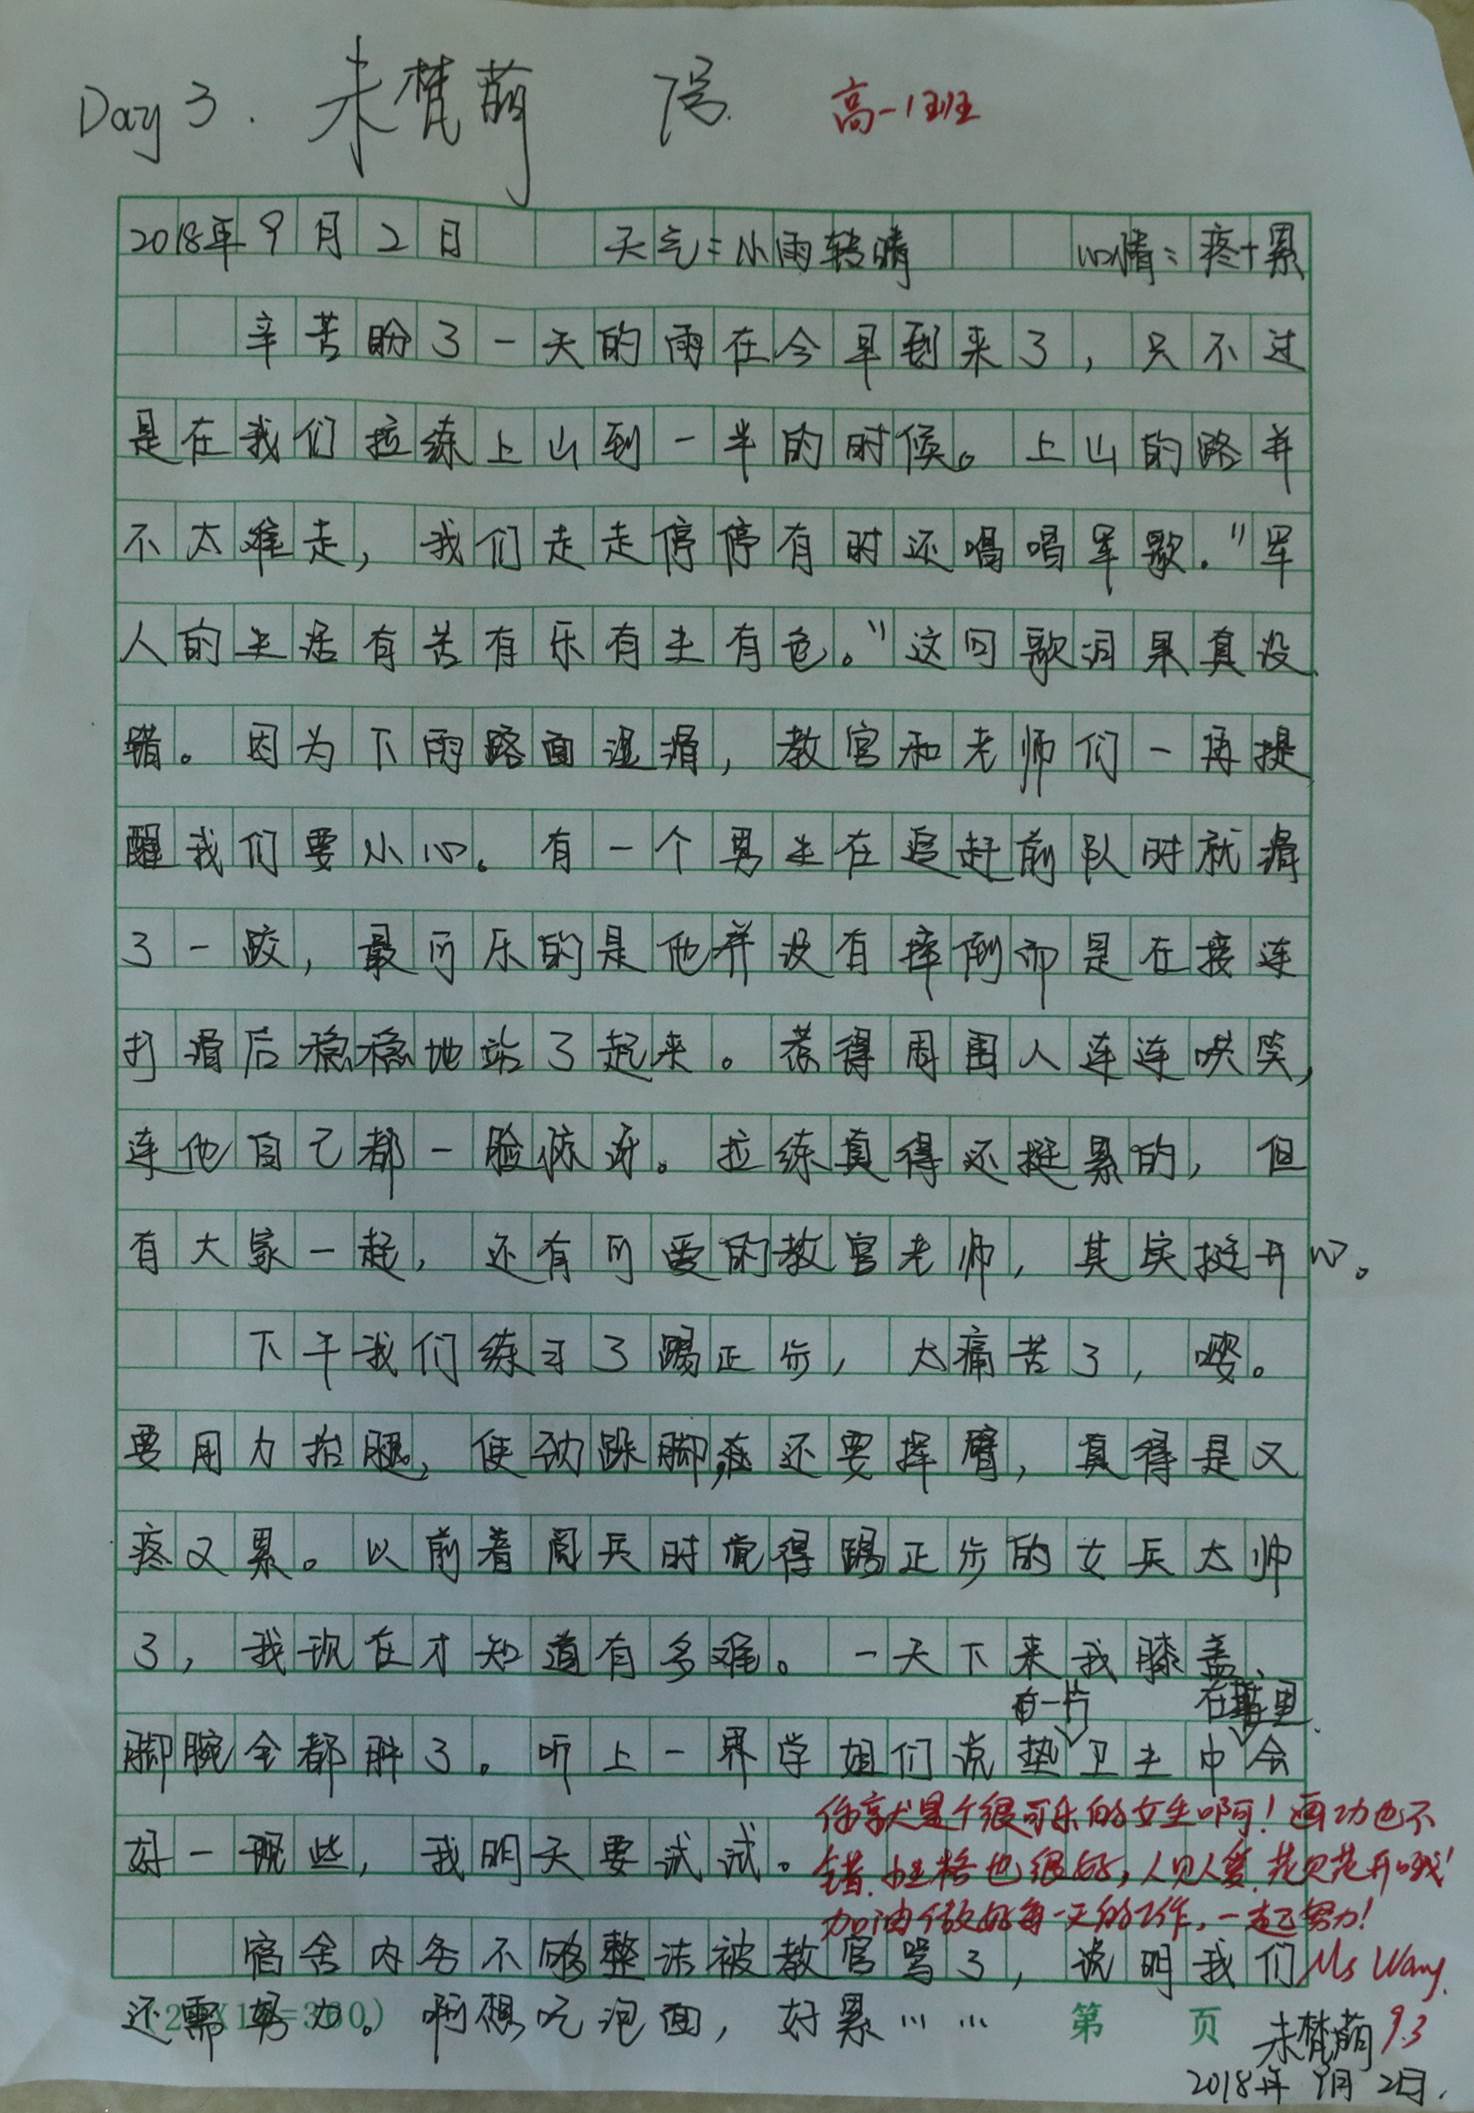 Day 3. 朱梵萌 1号. 高一1班
2018年9月2日 天气:小雨转晴 心情:疼+累
辛苦盼了一天的雨在今早到来了,只不过
是在我们拉练上山到一半的时候。上山的路并
不太难走,我们走走停停有时还唱唱军歌."军
人的生活有苦有乐有生有色。"这句歌词果真没
错。因为下雨路面湿滑,教官和老师们一再提
醒我们要小心。有一个男生在追赶前队时就滑
了一跤,最可乐的是他并没有摔倒而是在接连
打滑后稳稳地站了起来。惹得周围人连连哄笑,
连他自己都一脸惊讶。拉练真得还挺累的,但
有大家一起,还有可爱的教官老师,其实挺开心。
下午我们练习了踢正步,太痛苦了,嘤。
要用力抬腿,使劲跺脚,还要挥臂,真得是又
疼又累。以前看阅兵时觉得踢正步的女兵太帅
了,我现在才知道有多难。一天下来我膝盖、
有一片 在鞋里
脚腕全都肿了。听上一界学姐们说垫卫生巾会
好一些,我明天要试试。
你真是个很可乐的女生啊!画功也不
错,性格也很好,人见人爱,花见花开哦!
加油做好每一天的工作,一起努力!
宿舍内务不够整洁被教官骂了,说明我们 Ms Wang.
还需努力。啊想吃泡面,好累…… 第 页
朱梵萌 9.3
2018年9月2日.